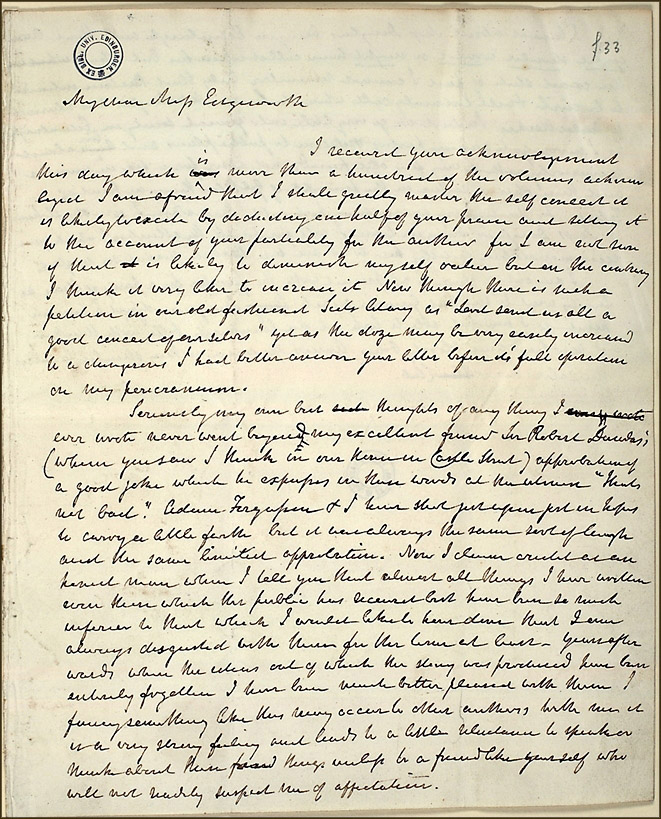 EX BIBL. UNIV. EDINBURGEN.
f. 33
My dear Miss Edgeworth
I received your acknowlegement
this day which was is more than a hundred of the volumes acknow
leged I am afraid that I shall greatly master the self conceit it
is likely to excite by deducting one half of your praise and setting it
to the account of your partiality for the author for I am not sure
if that it is likely to diminish my self value but on the contrary
I think it very like to increase it Now though there is such a
petition in our old fashiond Scots litany as "Lord send us all a
good conceit of ourselves" yet as the doze may be very easily increased
to a dangerous I had better answer your letter before its full operation
on my pericranium.
Seriously my own best thoughts of any thing I
ever wrote never went beyond my excellent friend Sir Robert Dundas's
(whom you saw I think in our house in Castle Street) approbation of
a good joke which he expresses in these words at the utmost "That's
not bad". Adam Fergusson & I have shot jest upon jest in hopes
to carry a little farther but it was always the same sort of laugh
and the same limited approbation. Now I claim credit as an
honest man when I tell you that almost all things I have written
even those which the public has received best have been so much
inferior to that which I would like to have done that I am
always disgusted with them for the time at least – years after
wards when the ideas out of which the story was produced have been
entirely forgotten I have been much better pleased with them I
fancy something like this may occur to other authors with me it
is a very strong feeling and leads to a little reluctance to speak or
think about these things unless to a friend like yourself who
will not readily suspect me of affectation.